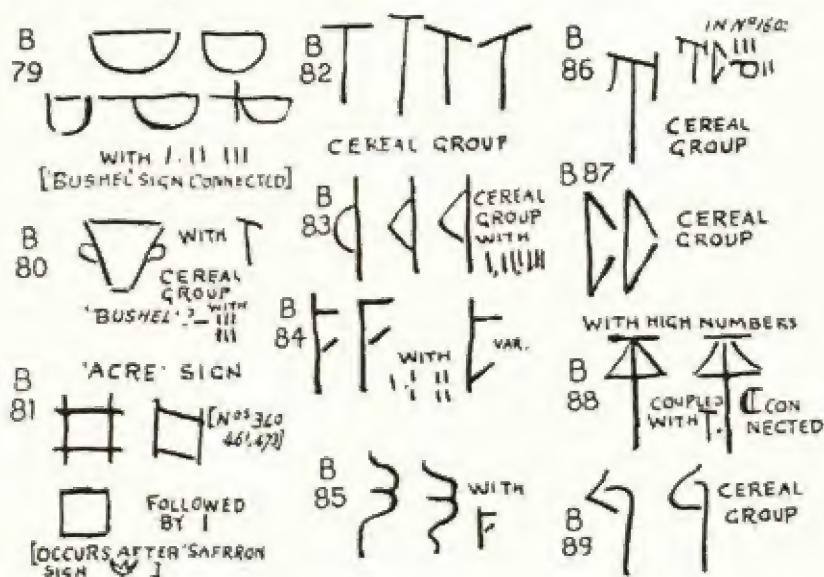 B
79
WITH I. II III
['BUSHEL' SIGN CONNECTED]
B
80
WITH
CEREAL
GROUP
'BUSHEL'?— WITH
III
III
'ACRE' SIGN
B
81
[Nos 360
461, 473]
FOLLOWED
BY I
[OCCURS AFTER 'SAFRRON
SIGN ]
B
82
CEREAL GROUP
B
83
CEREAL
GROUP
WITH
B
84
WITH
VAR.
B
85
WITH
B
86
IN No 160:
CEREAL
GROUP
B 87
CEREAL
GROUP
WITH HIGH NUMBERS
B
88
COUPLED
WITH
CON
NECTED
B
89
CEREAL
GROUP